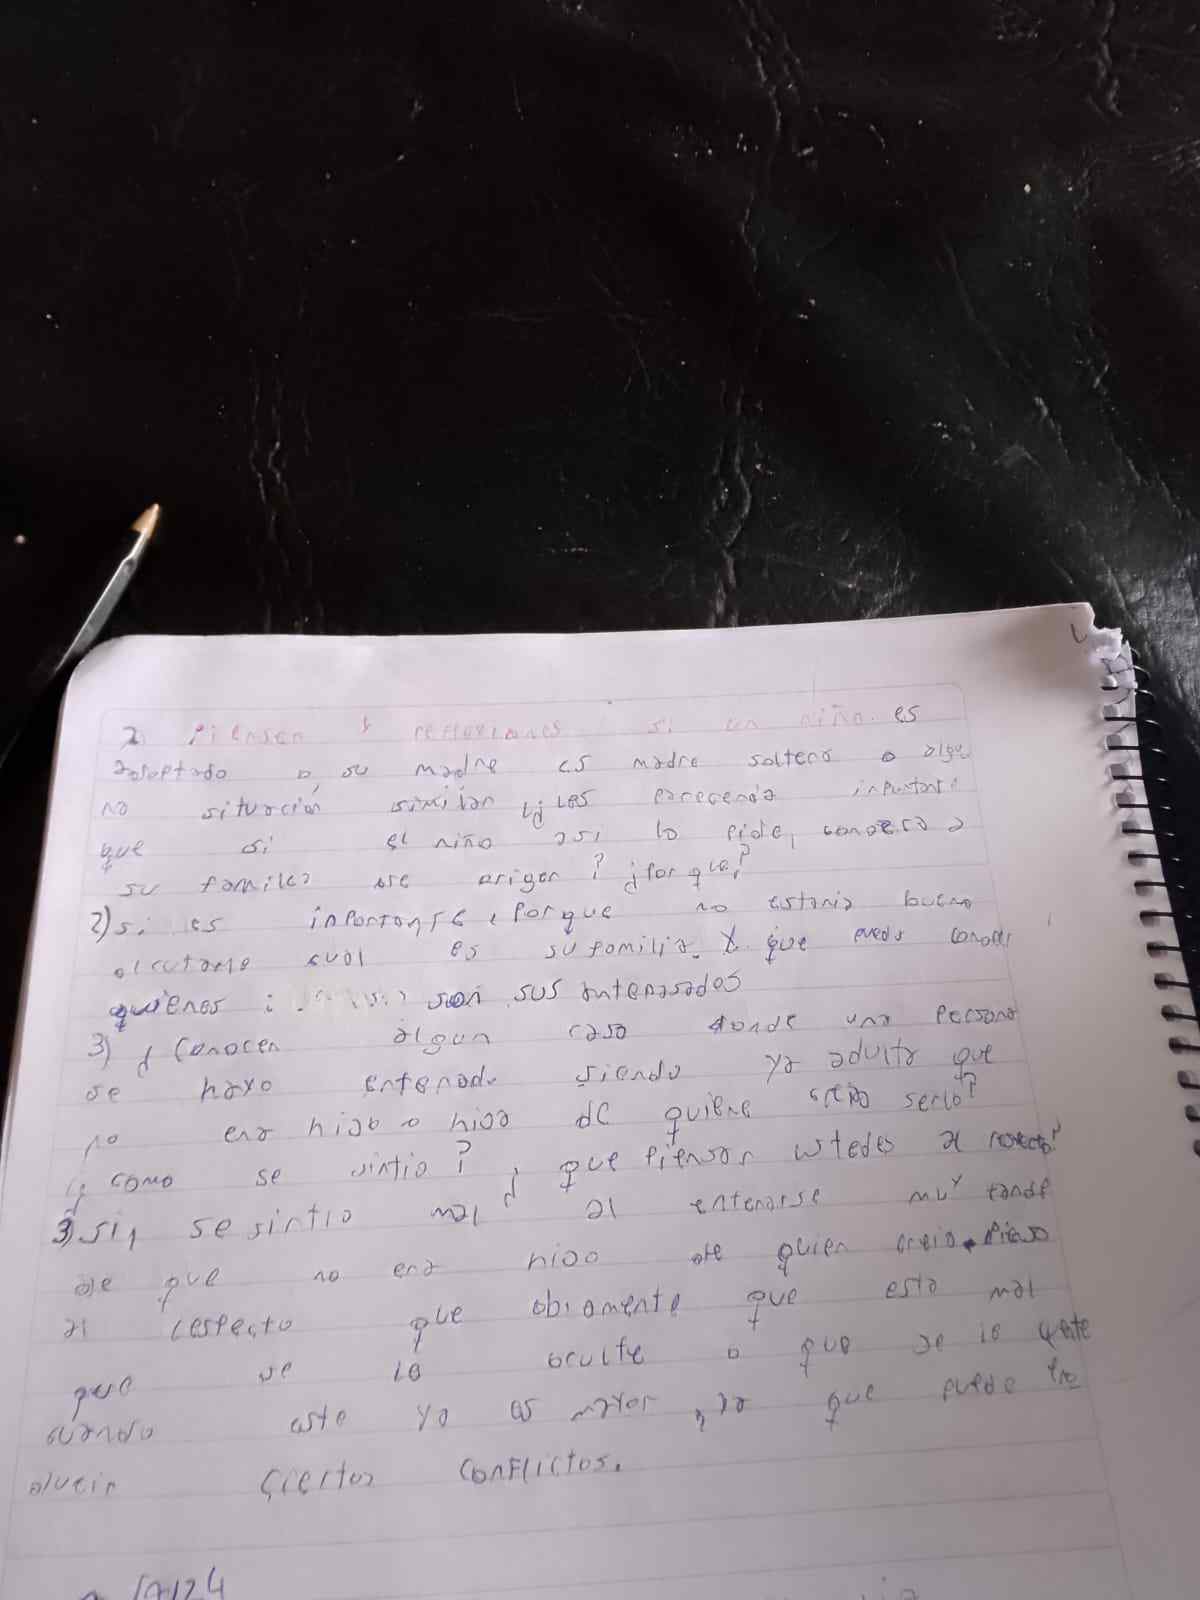 2. Piensen y reflexionen: si un niño es
adoptado o su madre es madre soltera o algu
na situación similar ¿Les parecería importante
que si el niño asi lo pide, conozca a
su familia de origen? ¿por que?
2) si es importante, porque no estaria bueno
ocultarle cual es su familia. Y que pueda conocer
quienes son sus antepasados
3) ¿Conocen algun caso donde una persona
se haya enterado siendo ya adulta que
no era hijo o hija de quiene serlo?
¿como se sintio? ¿que piensan ustedes al respecto?
3) Si, se sintio mal al enterarse muy tarde
de que no era hijo de quien creia. Pienso
al respecto que obiamente que esta mal
que se le oculte o que se le cuente
cuando este ya es mayor, ya que puede tra
ciertos conflictos.